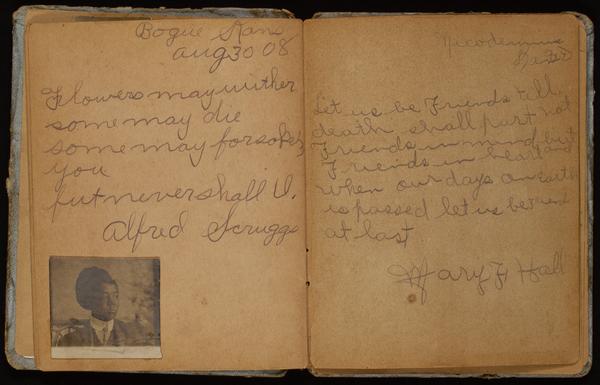 Bogue Kans
Aug 30 08
Flowers may wither
some may die
some may forsake
you
but never shall I.
Alfred Scruggs
Nicodemus
Let us be Friends till
death shall part not
Friends in mind but
Friends in heart and
when our days on Earth
is passed let us be Friends
at last
Mary F Hall